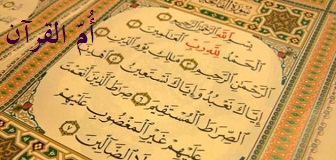 أُمّ القرآن
بِسْمِ اللَّهِ
الْحَمْدُ لِلَّهِ رَبِّ الْعَالَمِينَ
الرَّحْمَنِ الرَّحِيمِ مَلِكِ يَوْمِ الدِّينِ
إِيَّاكَ نَعْبُدُ وَإِيَّاكَ نَسْتَعِينُ
الصِّرَاطَ الْمُسْتَقِيمَ صِرَاطَ الَّذِينَ أَنْعَمْتَ
عَلَيْهِمْ غَيْرِ الْمَغْضُوبِ عَلَيْهِمْ
وَلَا الضَّالِّينَ